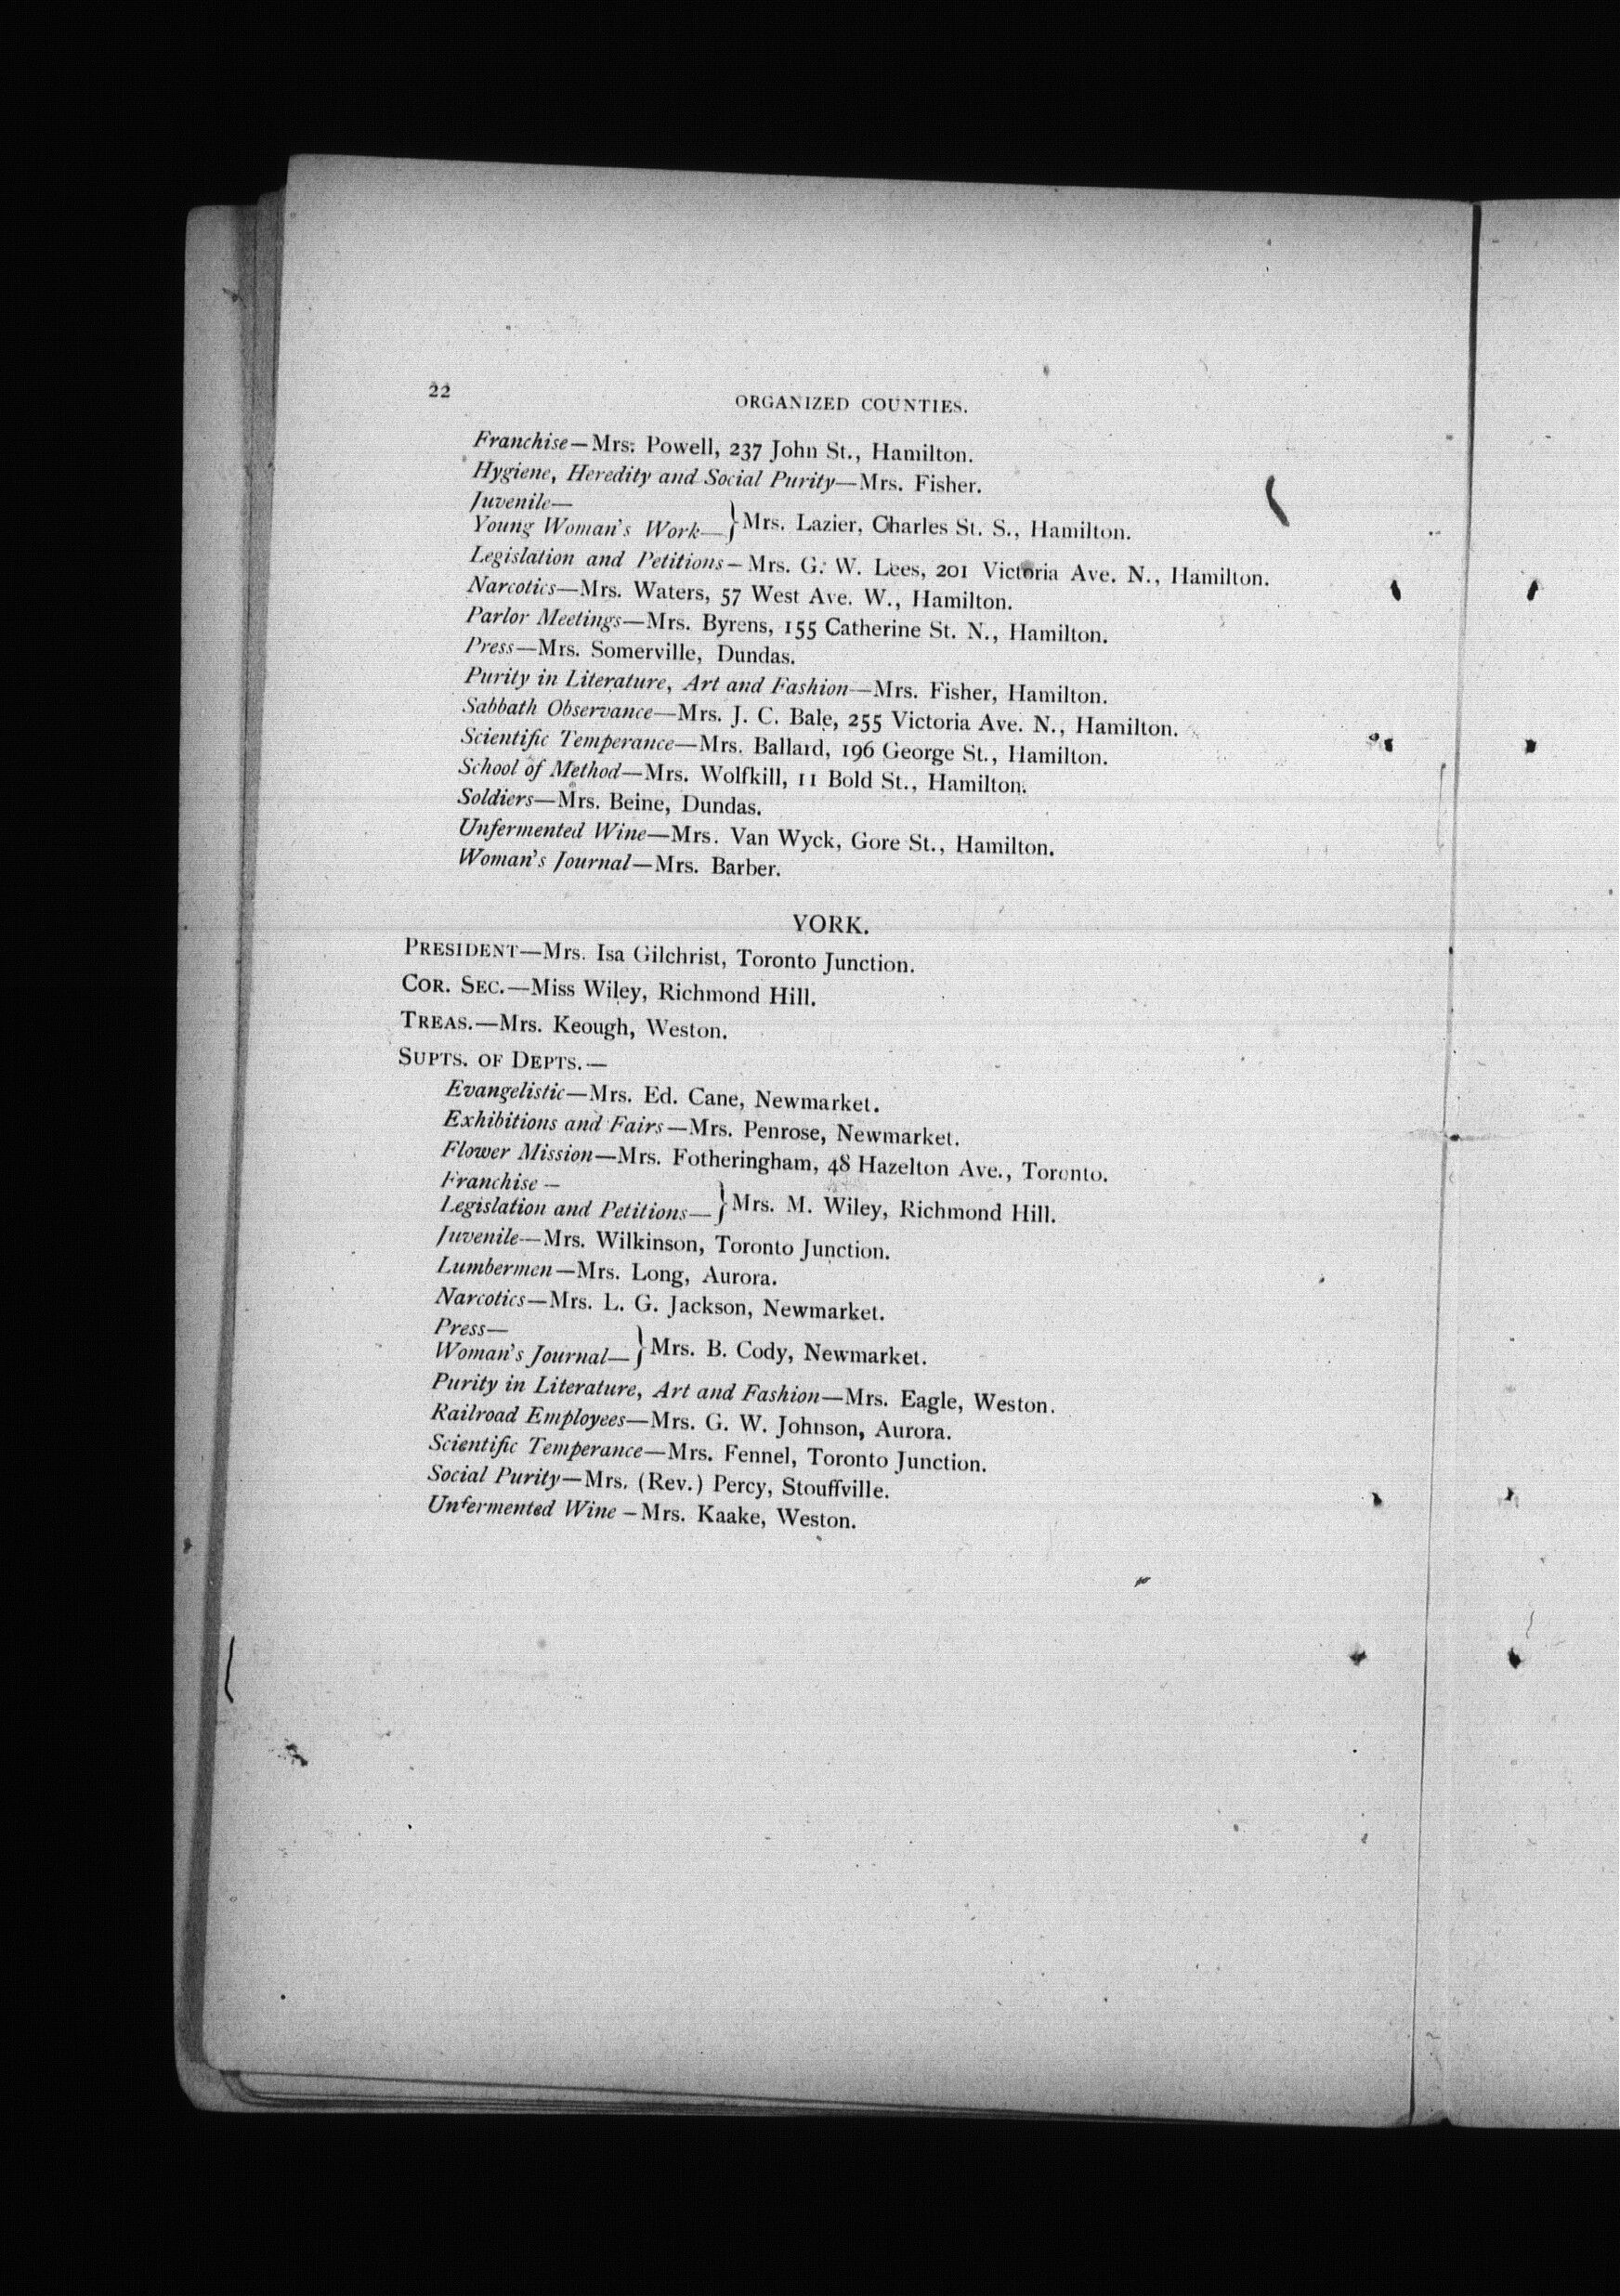 22
ORGANIZED COUNTIES.
Franchise—Mrs. Powell, 237 John St., Hamilton.
Hygiene, Heredity and Social Purity—Mrs. Fisher.
Juvenile—
Young Woman's Work— } Mrs. Lazier, Charles St. S., Hamilton.
Legislation and Petitions—Mrs. G. W. Lees, 201 Victoria Ave. N., Hamilton.
Narcotics—Mrs. Waters, 57 West Ave. W., Hamilton.
Parlor Meetings—Mrs. Byrens, 155 Catherine St. N., Hamilton.
Press—Mrs. Somerville, Dundas.
Purity in Literature, Art and Fashion—Mrs. Fisher, Hamilton.
Sabbath Observance—Mrs. J. C. Bale, 255 Victoria Ave. N., Hamilton.
Scientific Temperance—Mrs. Ballard, 196 George St., Hamilton.
School of Method—Mrs. Wolfkill, 11 Bold St., Hamilton.
Soldiers—Mrs. Beine, Dundas.
Unfermented Wine—Mrs. Van Wyck, Gore St., Hamilton.
Woman's Journal—Mrs. Barber.
YORK.
PRESIDENT—Mrs. Isa Gilchrist, Toronto Junction.
COR. SEC.—Miss Wiley, Richmond Hill.
TREAS.—Mrs. Keough, Weston.
SUPTS. OF DEPTS.—
Evangelistic—Mrs. Ed. Cane, Newmarket.
Exhibitions and Fairs—Mrs. Penrose, Newmarket.
Flower Mission—Mrs. Fotheringham, 48 Hazelton Ave., Toronto.
Franchise—
Legislation and Petitions— } Mrs. M. Wiley, Richmond Hill.
Juvenile—Mrs. Wilkinson, Toronto Junction.
Lumbermen—Mrs. Long, Aurora.
Narcotics—Mrs. L. G. Jackson, Newmarket.
Press—
Woman's Journal— } Mrs. B. Cody, Newmarket.
Purity in Literature, Art and Fashion—Mrs. Eagle, Weston.
Railroad Employees—Mrs. G. W. Johnson, Aurora.
Scientific Temperance—Mrs. Fennel, Toronto Junction.
Social Purity—Mrs. (Rev.) Percy, Stouffville.
Unfermented Wine—Mrs. Kaake, Weston.